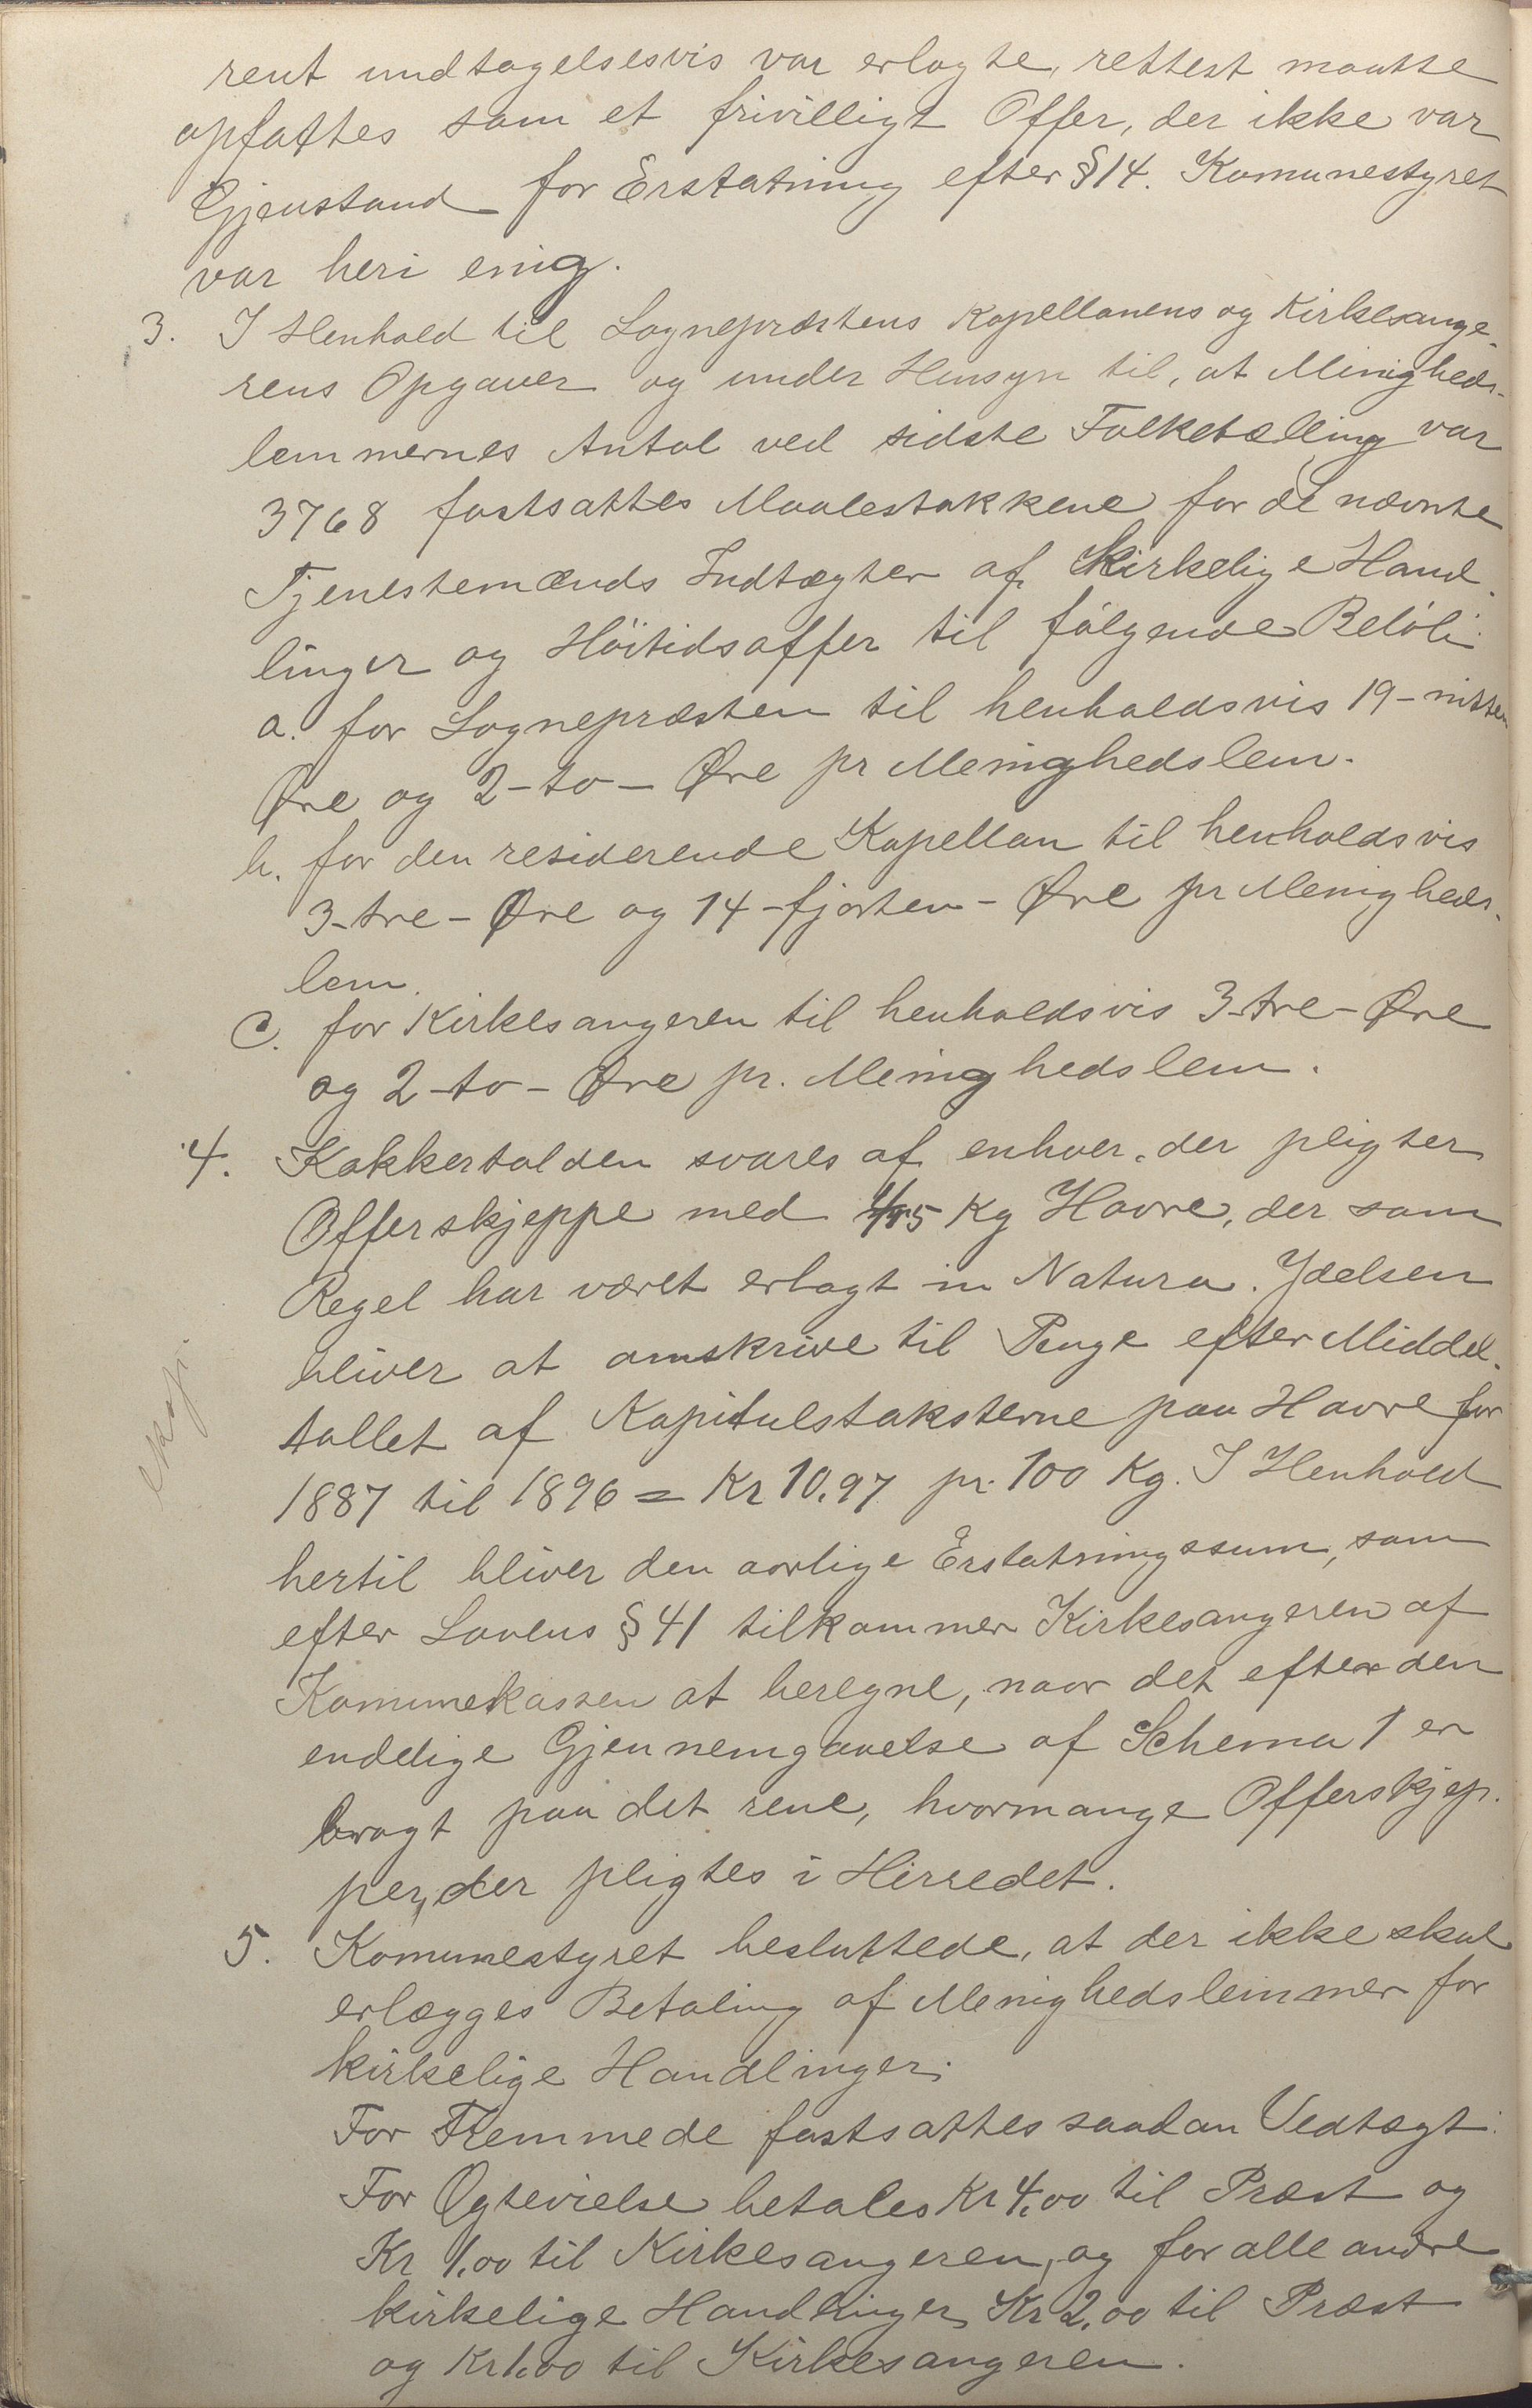 rent undtagelsesvis var erlagte, rettest maatte
opfattes som et frivilligt Offer, der ikke var
Gjenstand for Erstatning efter § 14. Komunestyret
var heri enig.
3. I Henhold til Sognepræstens Kapellanens og Kirkesange-
rens Opgaver og under Hensyn til, at Menigheds-
lemmernes Antal ved sidste Folketælling var
3768 fastsattes Maalestokkene for de nævnte
Tjenestemænds Indtægter af Kirkelige Hand-
linger og Höitidsoffer til følgende Beløb:
a. for Sognepræsten til henholdsvis 19-nitten
Øre og 2-to- Øre pr Menighedslem.
b. for den residerende Kapellan til henholdsvis
3-tre- Øre og 14-fjorten- Øre pr Menigheds-
lem.
c. for Kirkesangeren til henholdsvis 3-tre- Øre
og 2-to- Øre pr. Menighedslem.
4. Kakkertolden svares af enhver, der pligter
Offerskjeppe med Kg Havre, der som
Regel har været erlagt in Natura. Ydelsen
bliver at omskrive til Penge efter Middel-
tallet af Kapitelstaksterne paa Havre for
1887 til 1896 = Kr 10.97 pr. 100 Kg. I Henhold
hertil bliver den aarlige Erstatningssum, som
efter Lovens § 41 tilkommer Kirkesangeren af
Komunekassen at beregne, naar det efter den
endelige Gjennemgaaelse af Schema 1 er
bragt paa det rene, hvormange Offerskjep-
per, der pligtes i Herredet.
5. Komunestyret besluttede, at der ikke skal
erlægges Betaling af Menighedslemmer for
kirkelige Handlinger.
For Fremmede fastsattes saadan Vedtægt:
For Ægtevielse betales Kr 4.00 til Præst og
Kr 1.00 til Kirkesangeren, og for alle andre
kirkelige Handlinger Kr 2.00 til Præst
og Kr 1.00 til Kirkesangeren.